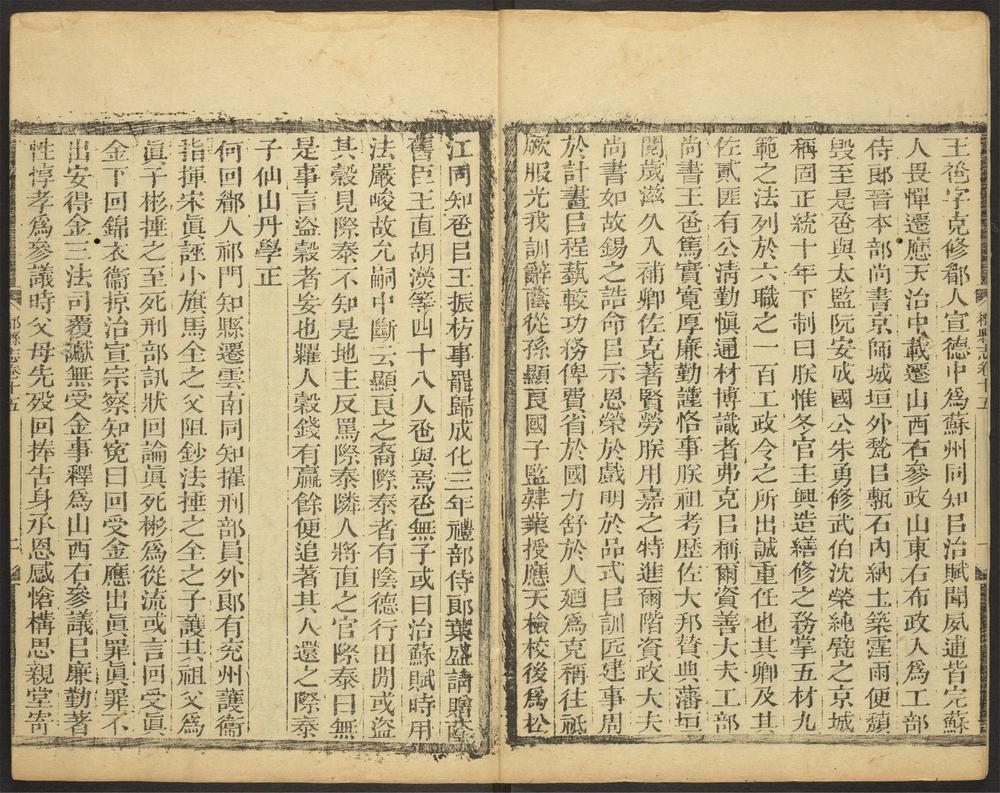 王卺字克修郿人宣德中爲蘇州同知㠯治賦聞夙逋皆完蘇
人畏憚遷應天治中載遷山西右參政山東右布政人爲工部
侍郎晉本部尚書京師城垣外甃㠯甎石內納土築霪雨便頹
毀至是卺與太監阮安成國公朱勇修武伯沈榮純甓之京城
稱固正統十年下制曰朕惟冬官主興造繕修之務掌五材九
範之法列於六職之一百工政令之所出誠重任也其卿及其
佐貳匪有公清勤愼通材博識者弗克㠯稱爾資善大夫工部
尚書王卺篤實寬厚廉勤謹恪事朕祖考歷佐大邦贊典藩垣
閱歲滋久入補卿佐克著賢勞朕用嘉之特進爾階資政大夫
尚書如故錫之誥命㠯示恩榮於戲明於品式㠯訓匠建事周
於計畫㠯程蓺較功務俾費省於國力舒於人廼爲克稱往祗
厥服光我訓辭蔭從孫顯良國子監肄業授應天檢校後爲松
江同知卺㠯王振枋事罷歸成化三年禮部侍郎葉盛請贈蔭
舊臣王直胡濙等四十八人卺與焉卺無子或曰治蘇賦時用
法嚴峻故允嗣中斷云顯良之裔際泰者有陰德行田閒或盜
其穀見際泰不知是地主反罵際泰隣人將直之官際泰曰無
是事言盜穀者妄也糶人穀錢有贏餘便追著其人還之際泰
子仙山丹學正
何回郿人祁門知縣遷雲南同知擢刑部員外郎有兖州護衞
指揮宋眞誣小旗馬全之父阻鈔法捶之全之子護其祖父爲
眞子彬捶之至死刑部訊狀回論眞死彬爲從流或言回受眞
金下回錦衣衞掠治宣宗察知冤曰回受金應出眞罪眞罪不
出安得金三法司覆讞無受金事釋爲山西右參議㠯廉勤著
性惇孝爲參議時父母先歿回捧告身承恩感愴構思親堂寄
郿縣志卷十五
一
郿縣志卷十五
二